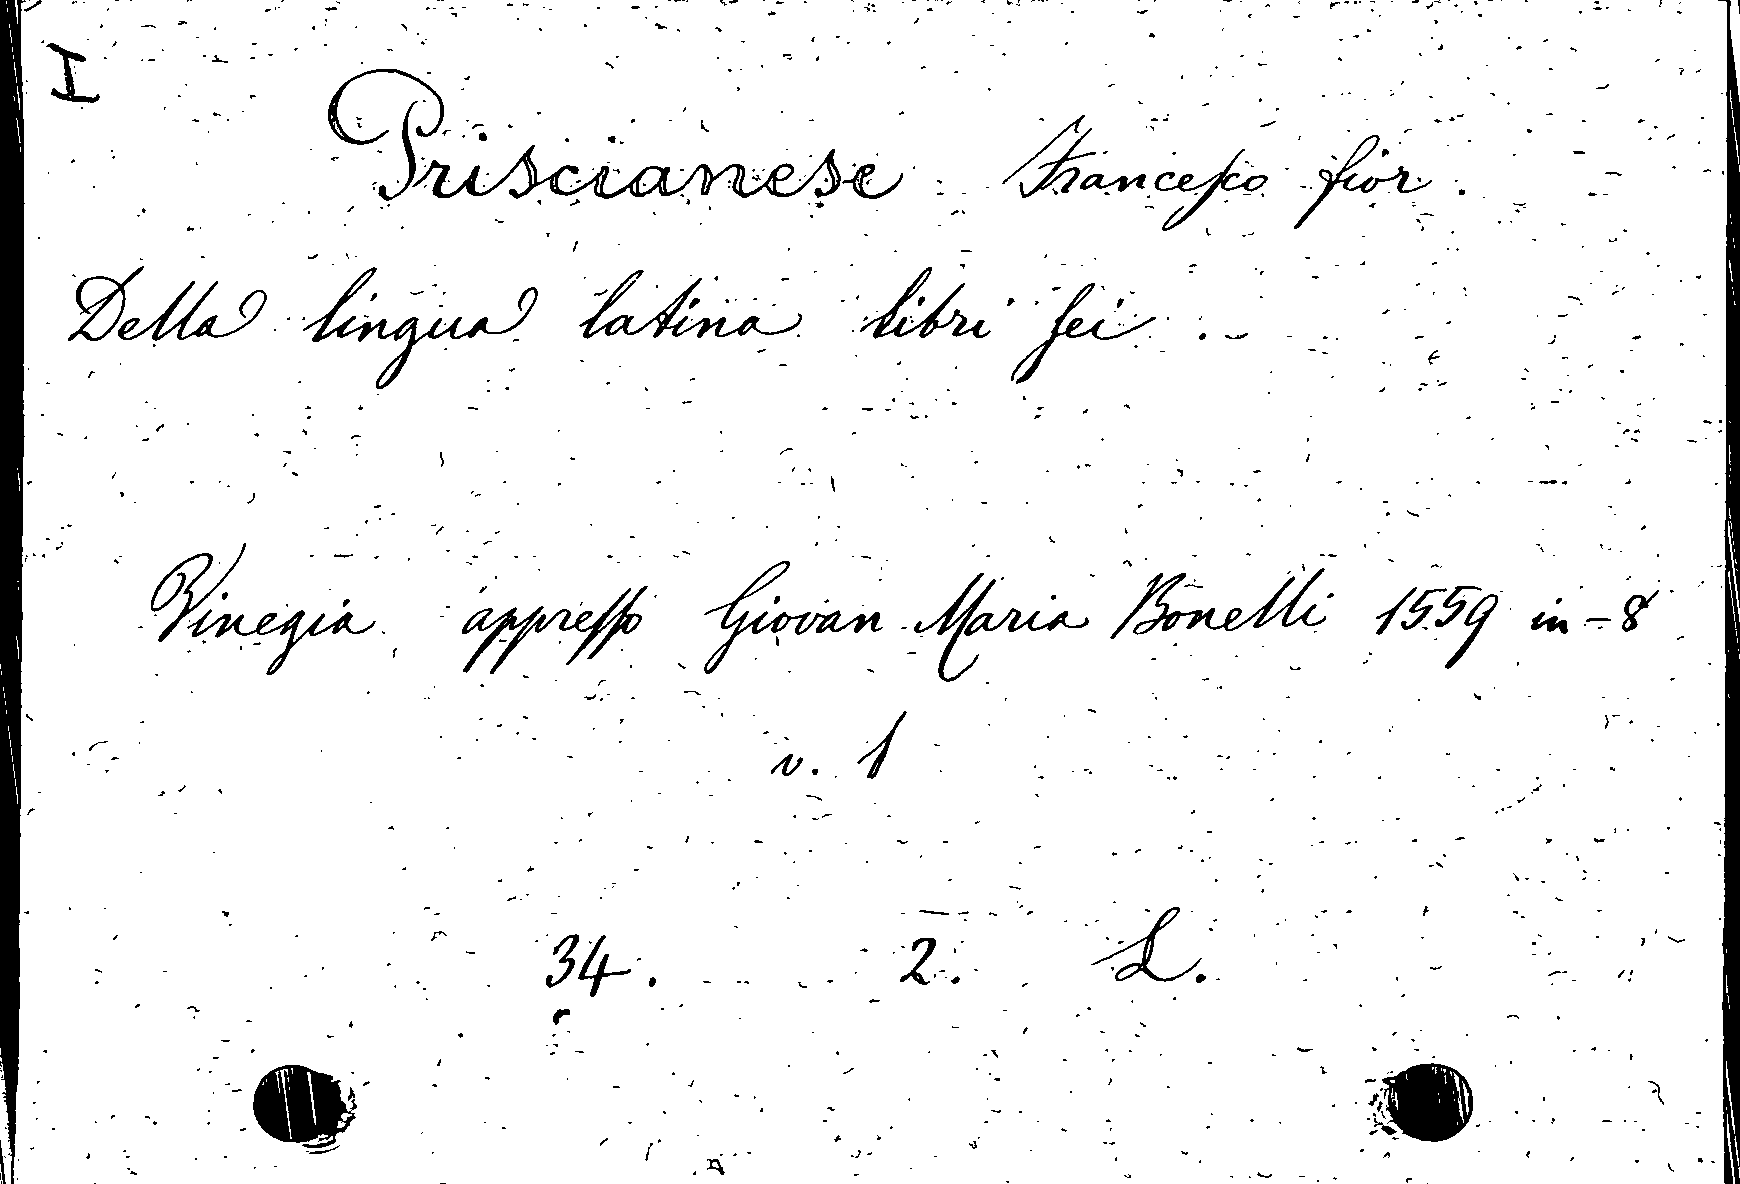 I
Priscianese Francesco fior.
Della lingua latina libri sei.
Vinegia appresso Giovan Maria Bonelli 1559 in-8
v. 1
34. 2. L.